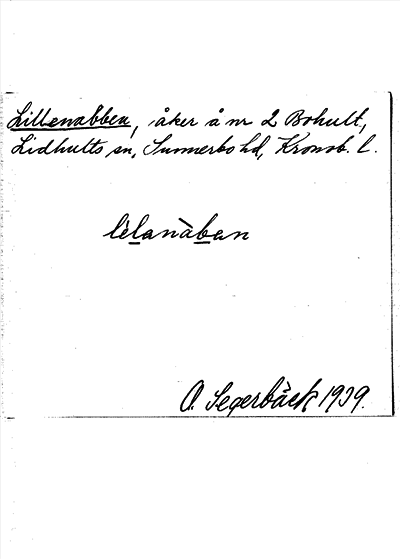 Lillenabben, åker å nr 2 Bohult,
Lidhults sn, Sunnerbo hd, Kronob. l.
lìlanàban
O. Segerbäck 1939.